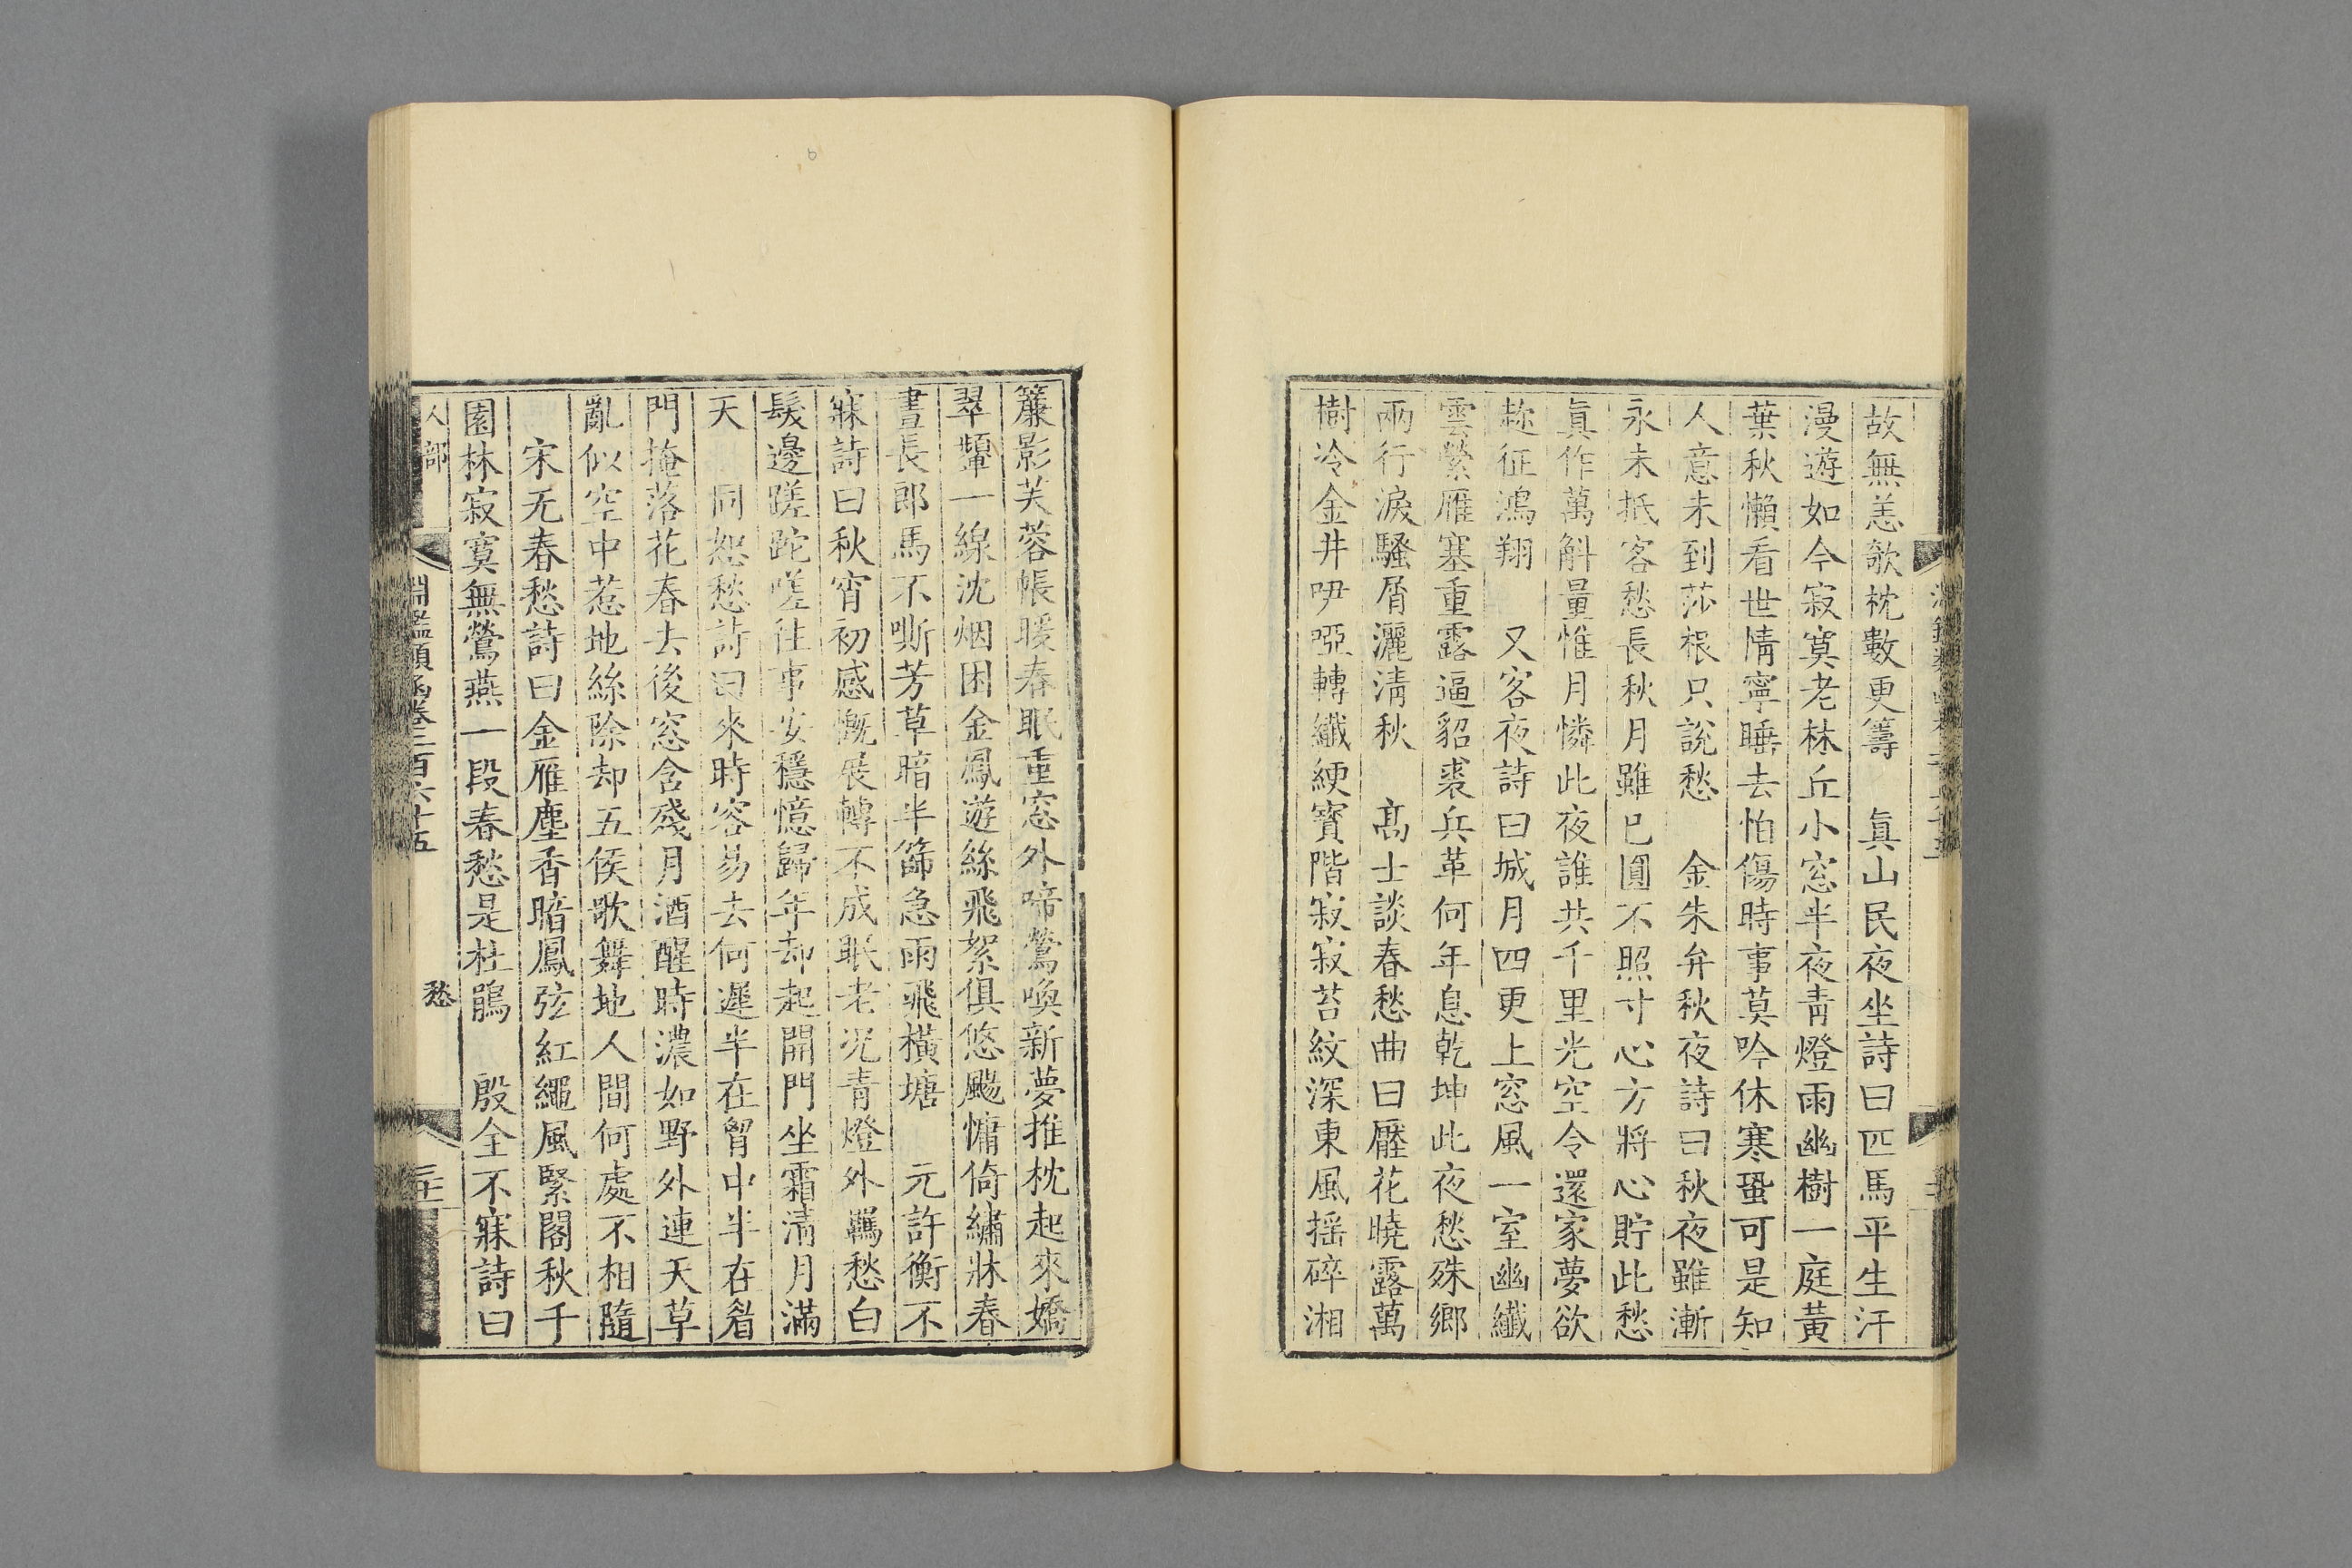 故無恙欹枕數更籌　眞山民夜坐詩曰匹馬平生汗
漫遊如今寂寞老林丘小窓半夜青燈雨幽樹一庭黃
葉秋懶看世情寧睡去怕傷時事莫吟休寒蛩可是知
人意未到莎根只說愁　金朱弁秋夜詩曰秋夜雖漸
永未抵客愁長秋月雖已圓不照寸心方將心貯此愁
眞作萬斛量惟月憐此夜誰共千里光空令還家夢欲
趂征鴻翔　又客夜詩曰城月四更上窓風一室幽纖
雲縈雁塞重露逼貂裘兵革何年息乾坤此夜愁殊鄉
兩行淚騷屑灑淸秋　髙士談春愁曲曰壓花曉露萬
樹冷金井咿啞轉纖綆寳階寂寂苔紋深東風揺碎湘
簾影芙蓉帳暖春眠重窓外啼鶯喚新夢推枕起來嬌
翠顰一線沈烟困金鳳遊絲飛絮俱悠颺慵倚繡牀春
晝長郎馬不嘶芳草暗半篩急雨飛橫塘　元許衡不
寐詩曰秋宵初感慨展轉不成眠老况青燈外羈愁白
髮邊蹉跎嗟往事安穩憶歸年却起開門坐霜淸月滿
天　同恕愁詩曰來時容易去何遲半在胷中半在眉
門掩落花春去後窓含殘月酒醒時濃如野外連天草
亂似空中惹地絲除却五侯歌舞地人間何處不相隨
宋无春愁詩曰金雁塵香暗鳳弦紅繩風緊閣秋千
園林寂寞無鶯燕一段春愁是杜鵑　殷全不寐詩曰
人部　淵鑑類函卷二百六十五　愁